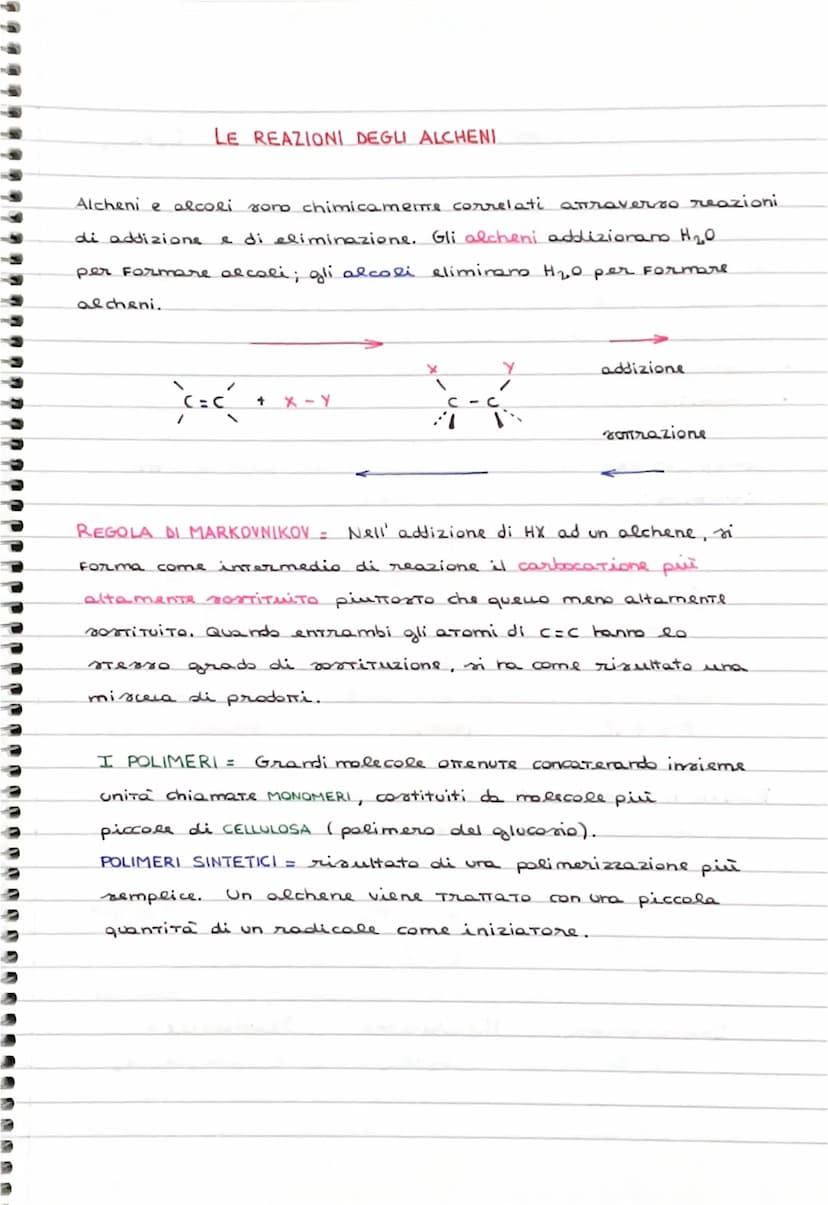 LE REAZIONI DEGLI ALCHENI
Alcheni e alcoli sono chimicamente correlati attraverso reazioni
di addizione e di eliminazione. Gli alcheni addizionano H₂O
per formare alcoli; gli alcoli eliminano H₂O per formare
alcheni.
X Y addizione
C=C + X-Y C-C
sottrazione
REGOLA DI MARKOVNIKOV = Nell' addizione di HX ad un alchene, si
forma come intermedio di reazione il carbocatione più
altamente sostituito piuttosto che quello meno altamente
sostituito. Quando entrambi gli atomi di C=C hanno lo
stesso grado di sostituzione, si ha come risultato una
miscela di prodotti.
I POLIMERI = Grandi molecole ottenute concatenando insieme
unità chiamate MONOMERI, costituiti da molecole più
piccole di CELLULOSA (polimero del glucosio).
POLIMERI SINTETICI = risultato di una polimerizzazione più
semplice. Un alchene viene trattato con una piccola
quantità di un radicale come iniziatore.